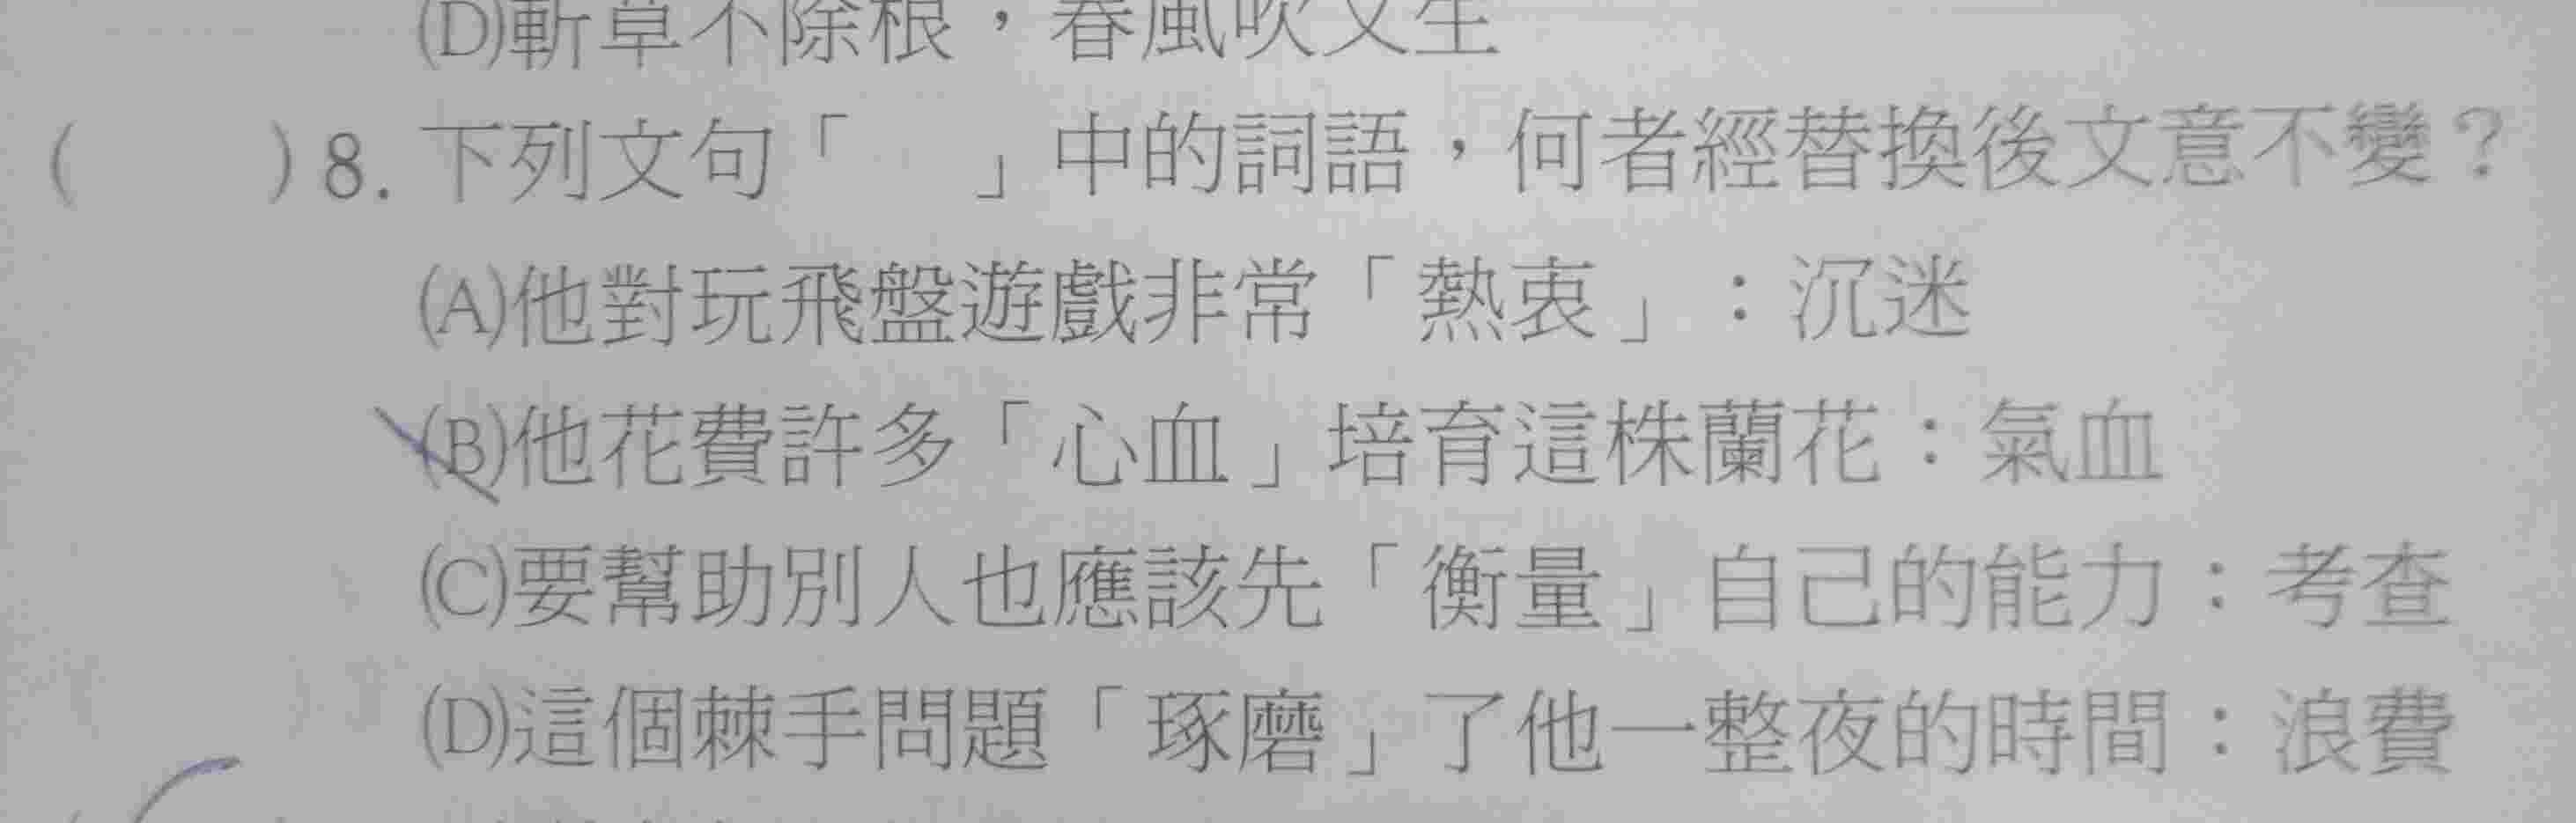 (D)斬草不除根，春風吹又生
(　　)8. 下列文句「　」中的詞語，何者經替換後文意不變？
(A)他對玩飛盤遊戲非常「熱衷」：沉迷
(B)他花費許多「心血」培育這株蘭花：氣血
(C)要幫助別人也應該先「衡量」自己的能力：考查
(D)這個棘手問題「琢磨」了他一整夜的時間：浪費